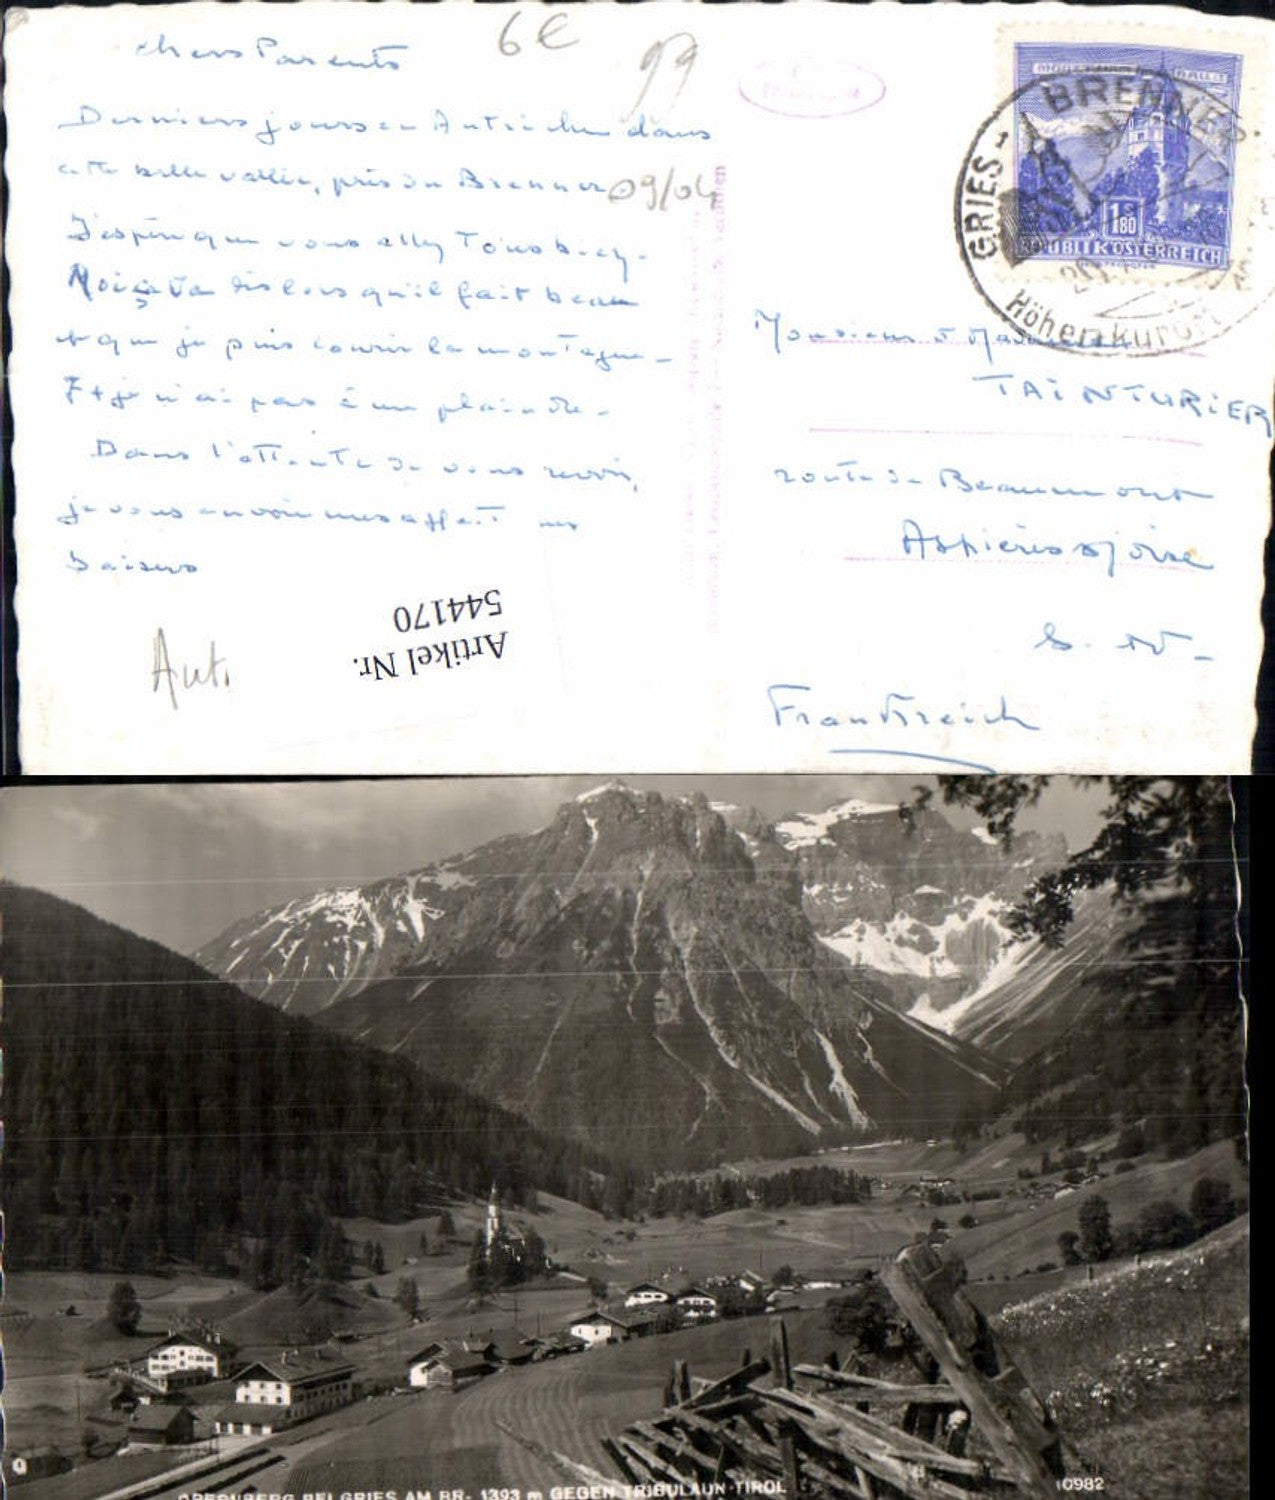 6€
99
chers Parents
Derniers jours en Autriche dans
cette belle vallée, près du Brenner
09/04
J'espère que vous allez Tous bien.
Moi ça va dès lors qu'il fait beau
et que je puis courir la montagne -
Et je n'ai pas à me plaindre.
Dans l'attente de vous revoir,
je vous envoie mes affect. ues
baisers
Artikel Nr.
544170
Aut.
GRIES - BRENNER
Höhenkurort
1.80
REPUBLIK ÖSTERREICH
Monsieur et Madame
TAINTURIER
route de Beaumont
Asnières s/oise
S. et O.
Frankreich
OBERNBERG BEI GRIES AM BR. 1393 m GEGEN TRIBULAUN-TIROL
10982